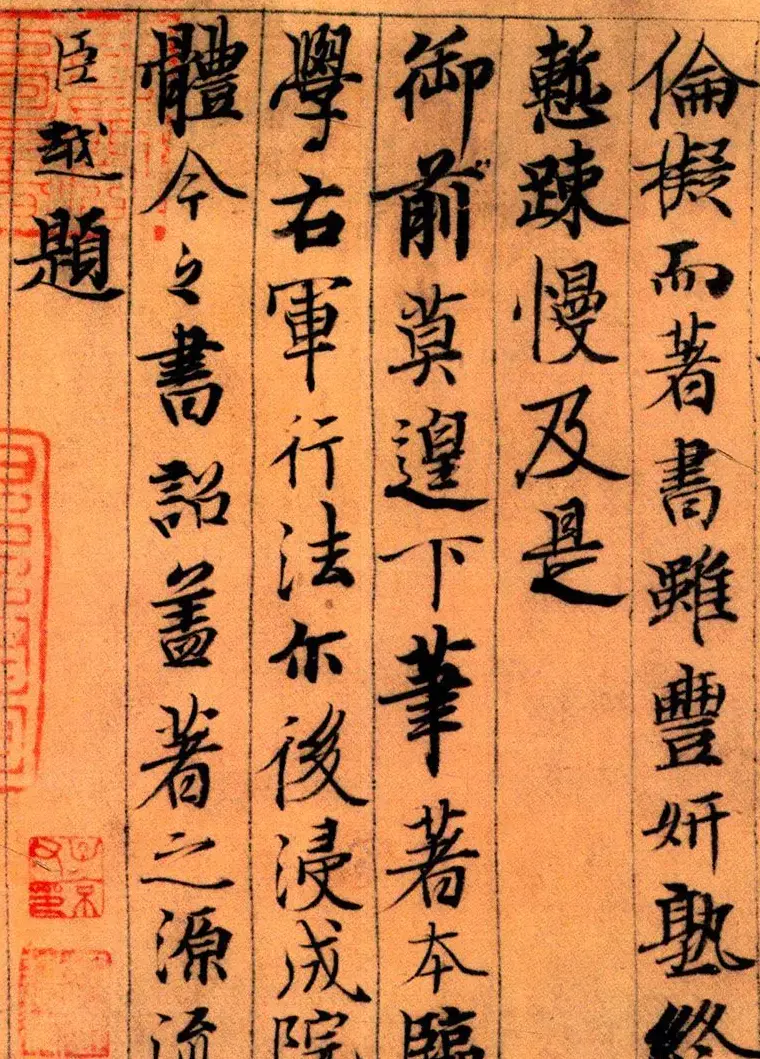 倫擬而著書雖豐妍熟終
慙踈慢及是
御前莫遑下筆著本臨
學右軍行法尒後浸成院
體今之書詔蓋著之源流
臣越題